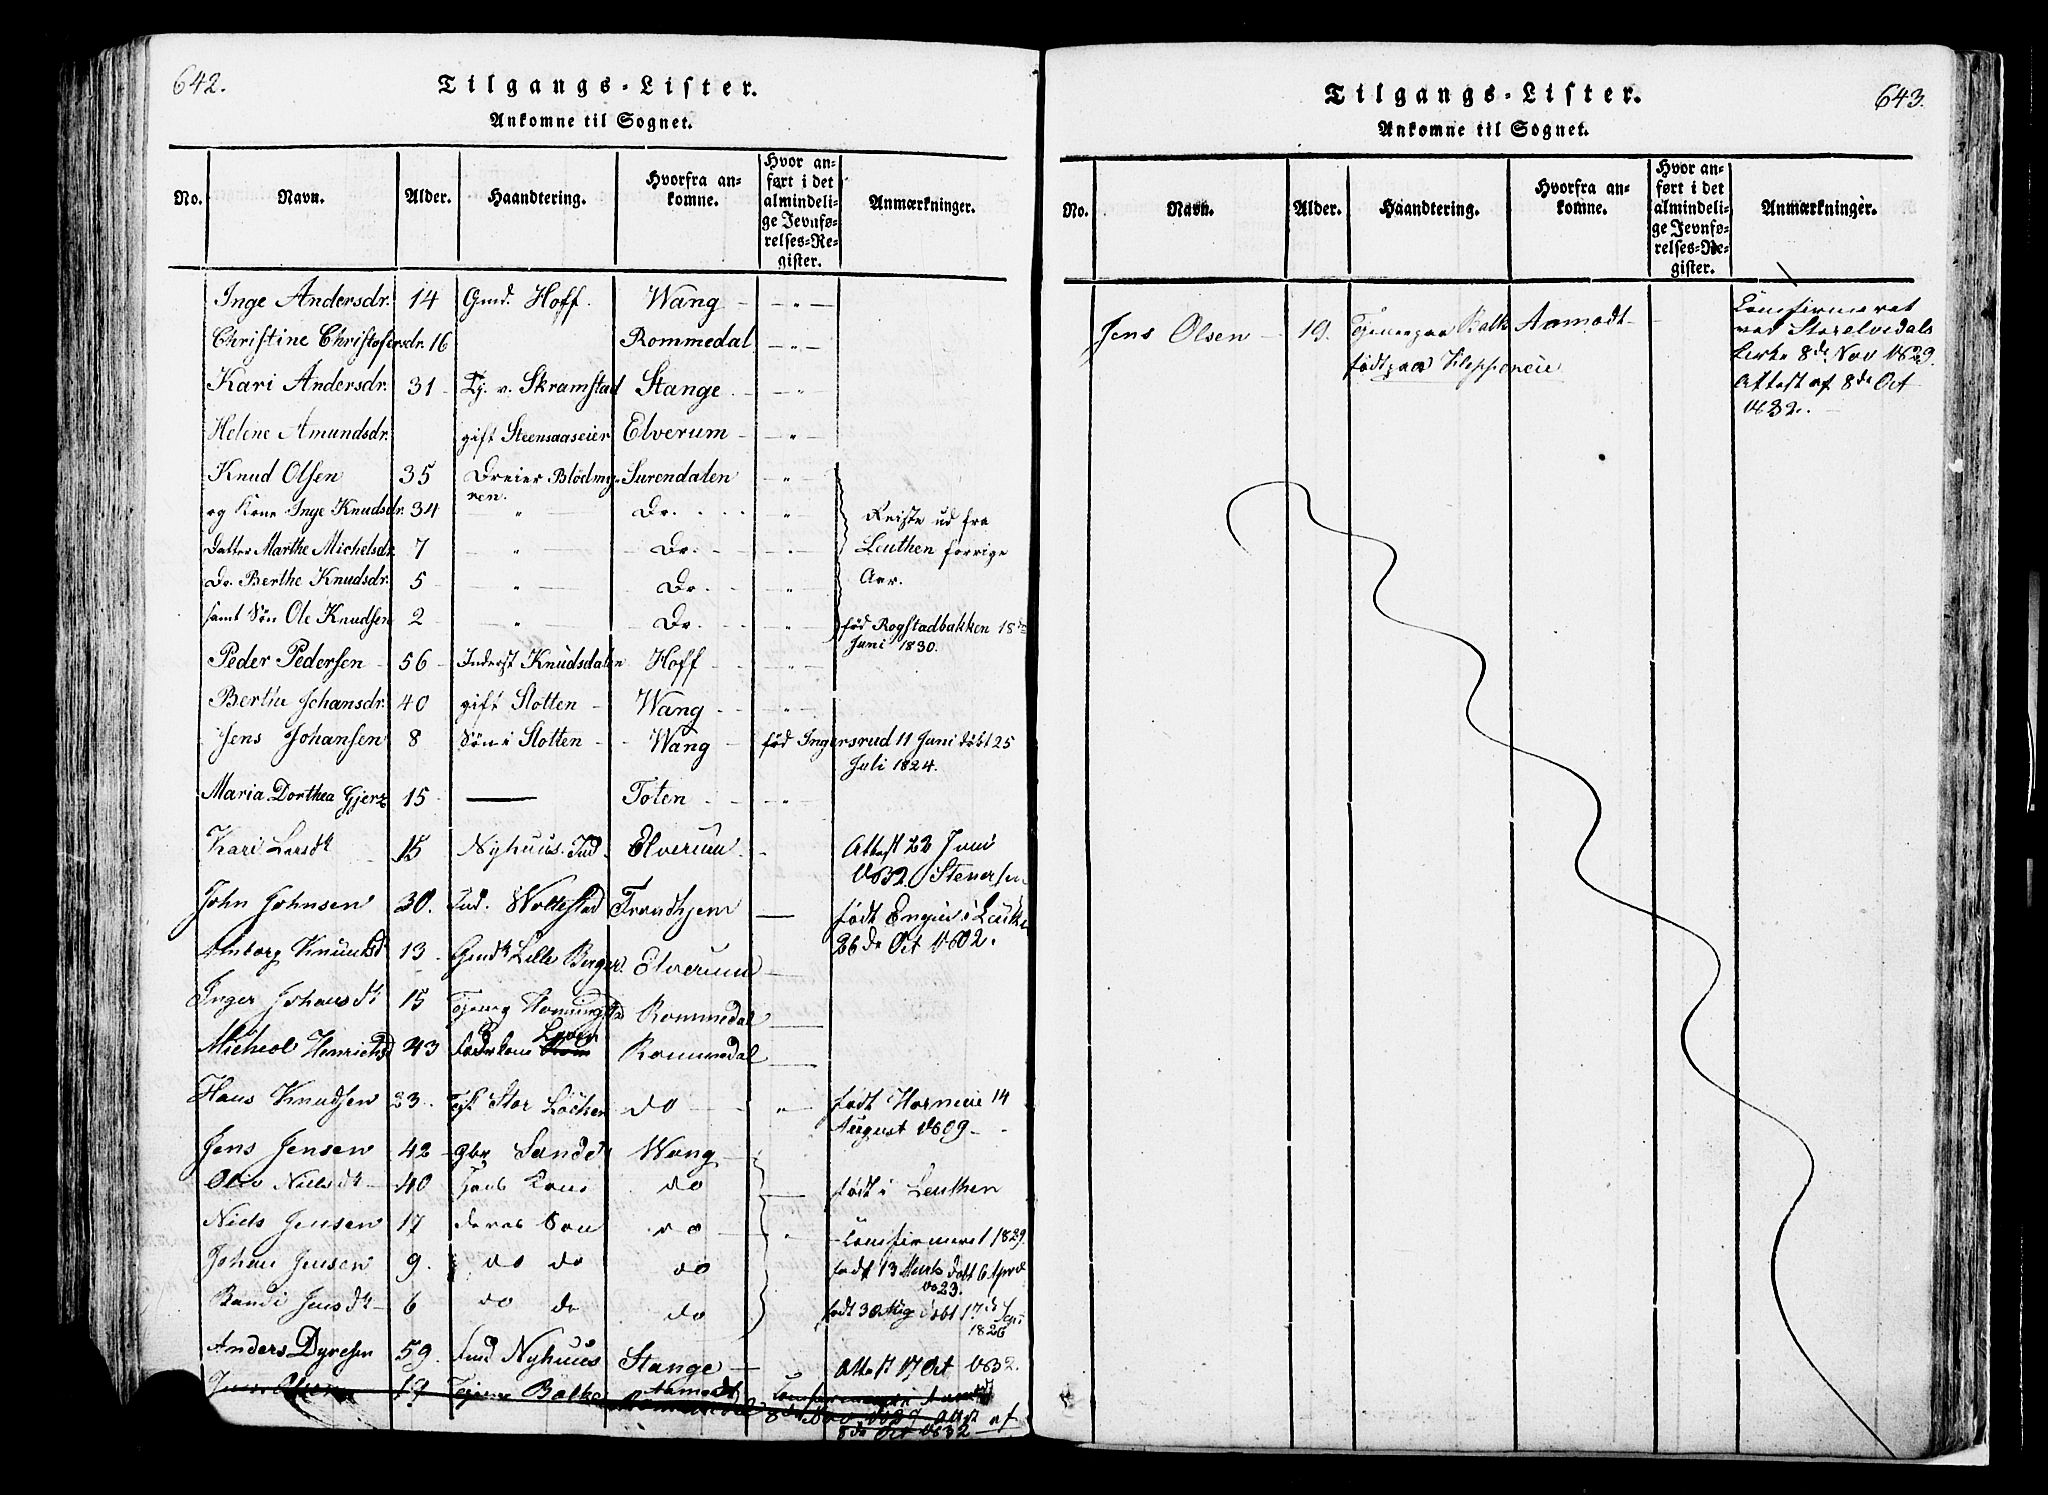 642.
Tilgangs-Lister.
Ankomne til Sognet.
No. Navn. Alder. Haandtering. Hvorfra an-komne. Hvor an-ført i det almindeli-ge Jevnfø-relses-Re-gister. Anmærkninger.
Inge Andersdr. 14 Gmd. Hoff. Wang - " -
Christine Christofersdr. 16 Rommedal - " -
Kari Andersdr. 31 Tj. v. Skramstad Stange - " -
Helene Amundsdr. gift Steensaaseier Elverum - " -
Knud Olsen 35 Dreier Blödmy-ren. Surendalen "
og Kone Inge Knudsdr. 34 " Do. " Reiste ud fra
Datter Marthe Michelsdr. 7 " Do. " Leuthen forrige
Do. Berthe Knudsdr. 5 " Do. " Aar.
samt Sön Ole Knudsen 2 " Do. " föd Rogstadbakken 18de
Juni 1830.
Peder Pedersen 56 Inderst Knudsdalen Hoff "
Berthe Johansdr. 40 gift Slotten Wang "
Jens Johansen 8 Sön i Slotten Wang föd Ingersrud 11 Juni döbt 25
Juli 1824.
Maria Dorthea Gjerz 15 — Toten "
Kari Larsdr 15 Nyhuus Ind. Elverum - Attest 22 Juni
1832. Stenersen
John Johnsen 30. Ind. Trondhjem — födt i
26de Oct 1802.
Knudsd 13 Gmdr Lille Berger. Elverum —
Inger Johansdr 15 Rommedal —
Henriksd 43 Rommedal —
Hans Knudsen 23. Stor Löcken do " födt 14
August 1809
Jens Jensen 42 gbr Sande Wang
Nielsdr 40 hans Kone do — födt i Leuthen
Niels Jensen 17 deres Sön do " Confirmeret 1829.
Johan Jensen 9. do do do födt 13 Marts döbt 6 April
1823.
Randi Jensdr 6 do do do födt 30 Aug döbt 17de
1826
Anders Dyresen 59. Ind Nyhuus Stange — Attest 17 Oct 1832.
Jens Olsen 19 Balke Aamodt
8de Nov 1829 Attest af
8de Oct 1832
643.
Tilgangs-Lister.
Ankomne til Sognet.
No. Navn. Alder. Haandtering. Hvorfra an-komne. Hvor an-ført i det almindeli-ge Jevnfø-relses-Re-gister. Anmærkninger.
Jens Olsen 19. Tjener paa Balke Aamodt - Confirmeret
ved Storelvedals
Kirke 8de Nov 1829.
födt paa Kleppeneie Attest af 8de Oct
1832.